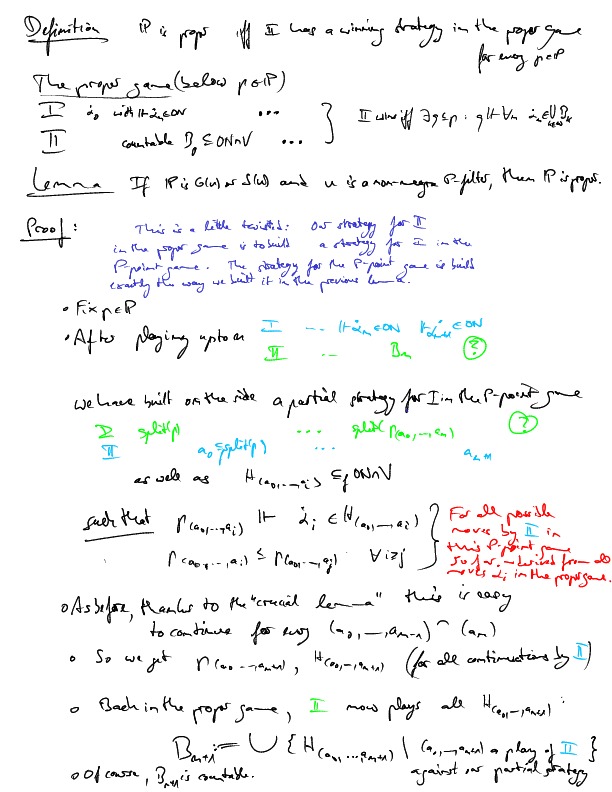 Definition P is proper iff II has a winning strategy in the proper game
for every p∈P
The proper game (below p∈P)
I α̇₀ with ⊩ α̇₀∈ON ...
II countable B₀ ⊆ ON∩V ...
} II wins iff ∃q≤p : q ⊩ ∀n α̇ₙ ∈ ⋃ Bₖ
Lemma If P is G(u) or S(u) and u is a non-meagre P-filter, then P is proper.
Proof: This is a little twisted: Our strategy for II
in the proper game is to build a strategy for I in the
P-point game. The strategy for the P-point game is built
exactly the way we built it in the previous lemma.
• Fix p∈P
• After playing up to n I ... ⊩ α̇ₙ∈ON ⊩ α̇ₙ₊₁∈ON
II ... Bₙ (?)
we have built on the side a partial strategy for I in the P-point game
I split(p) ... split(p(a₀,…,aₙ)) (?)
II a₀ ⊆ split(p) ... aₙ₊₁
as well as H(a₀,…,aᵢ) ⊆f ON∩V
such that p(a₀,…,aᵢ) ⊩ α̇ᵢ ∈ H(a₀,…,aᵢ)
p(a₀,…,aᵢ) ≤ p(a₀,…,aⱼ) ∀i≥j
For all possible
moves by II in
this P-point game
so far derived from all
moves α̇ᵢ in the proper game.
• As before, thanks to the "crucial lemma" this is easy
to continue for every (a₀,…,aₙ₋₁)⌢(aₙ)
• So we get p(a₀,…,aₙ₊₁), H(a₀,…,aₙ₊₁) (for all continuations by II)
• Back in the proper game, II now plays all H(a₀,…,aₙ₊₁):
Bₙ₊₁ := ⋃ { H(a₀,…,aₙ₊₁) | (a₀,…,aₙ₊₁) a play of II }
against our partial strategy
• Of course, Bₙ₊₁ is countable.